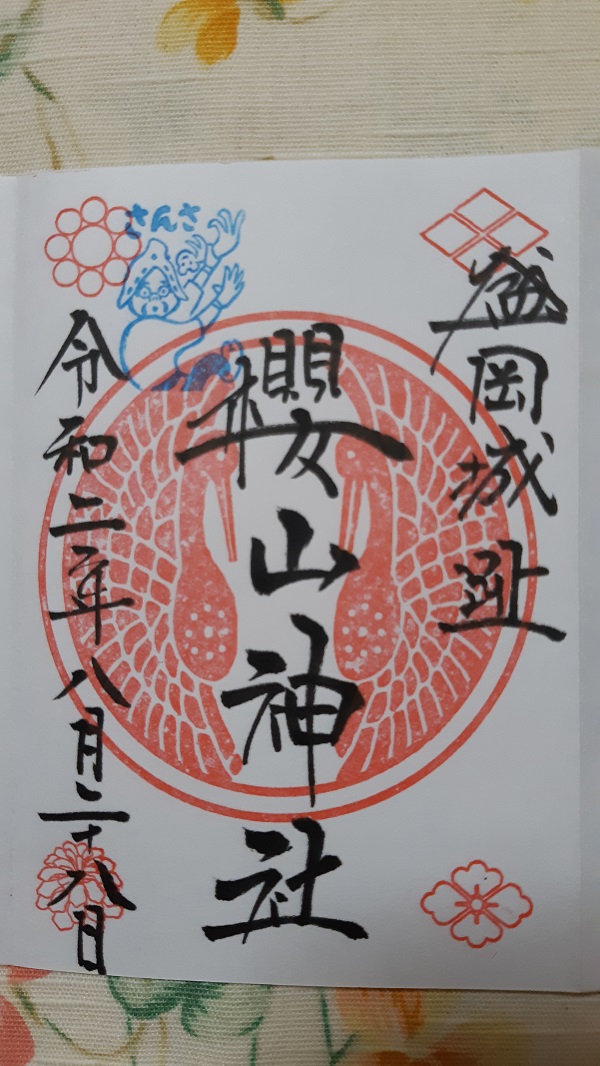 盛岡城趾
櫻山神社
令和二年八月二十八日
さんさ